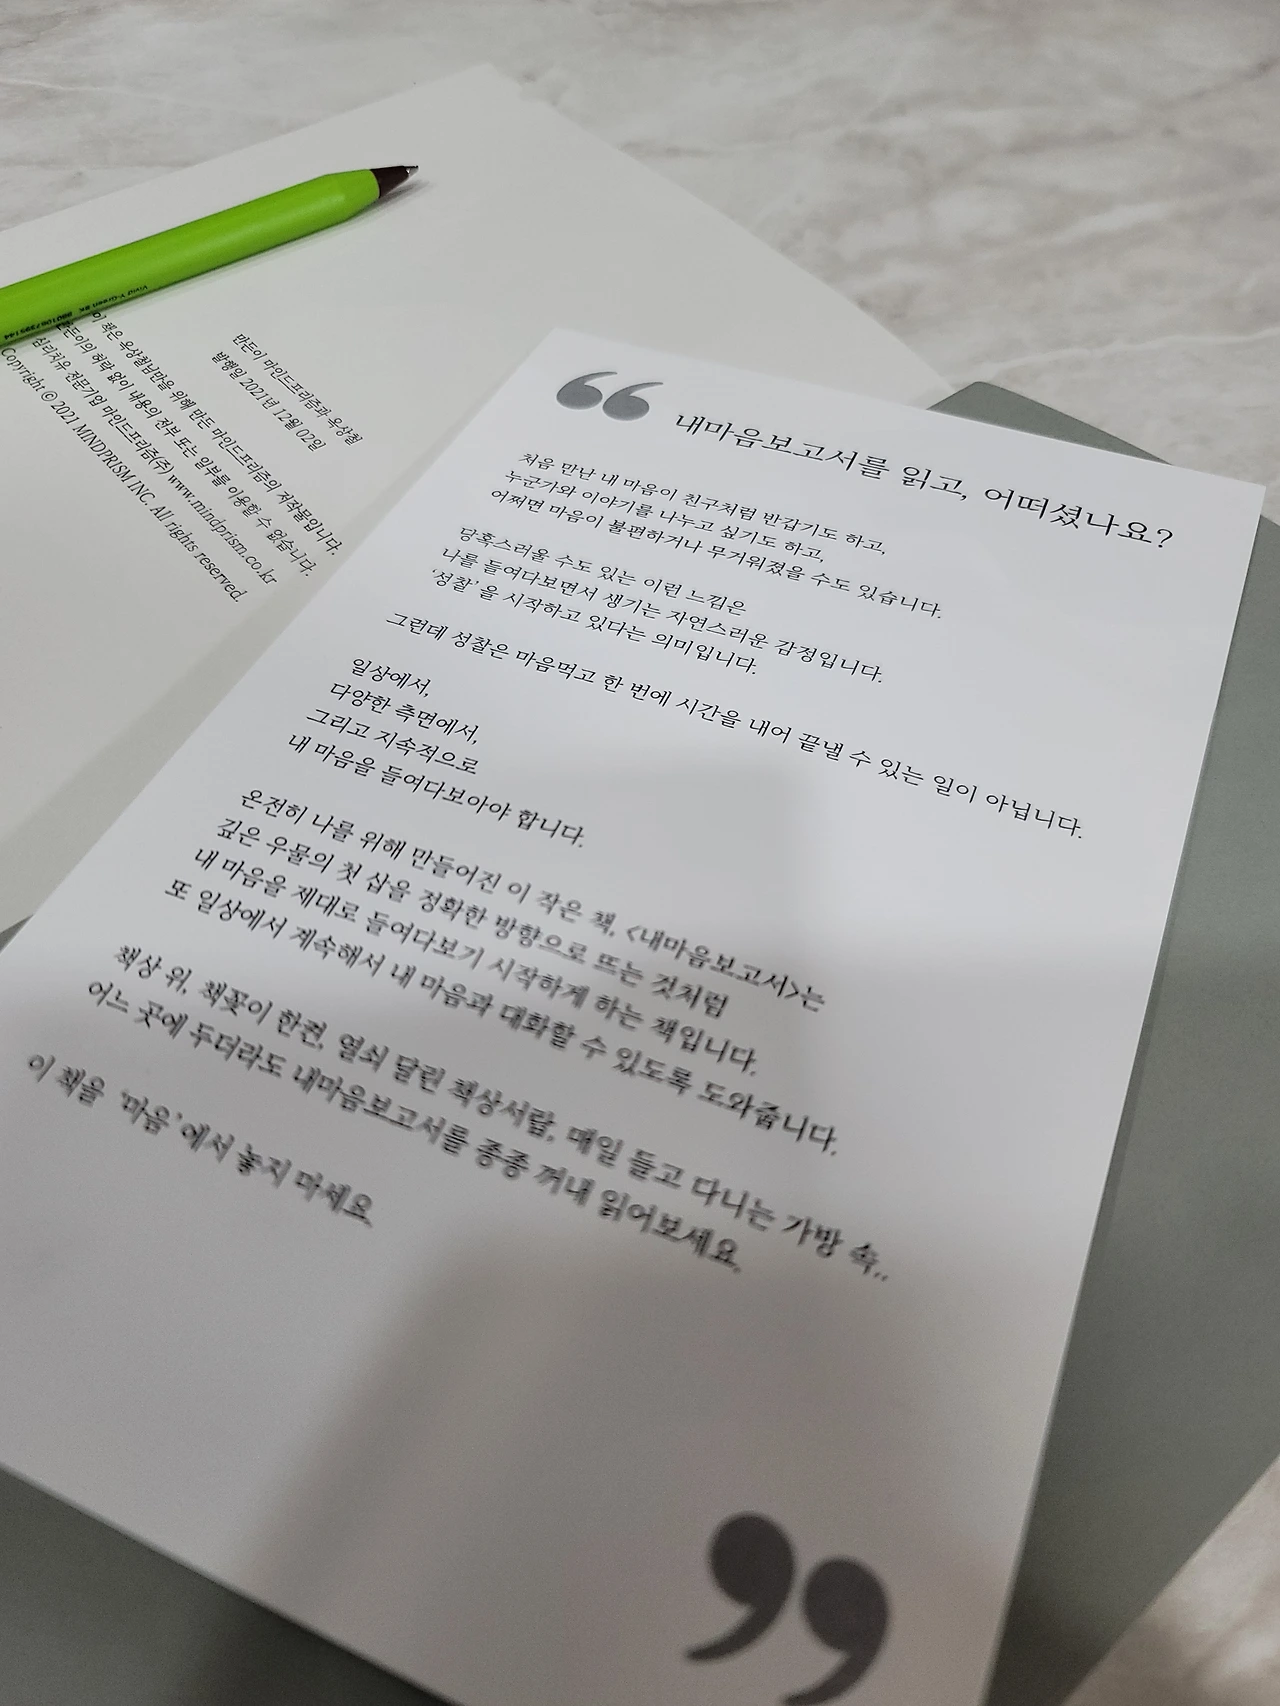 내마음보고서를 읽고, 어떠셨나요?
처음 만난 내 마음이 친구처럼 반갑기도 하고,
누군가와 이야기를 나누고 싶기도 하고,
어쩌면 마음이 불편하거나 무거워졌을 수도 있습니다.
당혹스러울 수도 있는 이런 느낌은
나를 들여다보면서 생기는 자연스러운 감정입니다.
'성찰'을 시작하고 있다는 의미입니다.
그런데 성찰은 마음먹고 한 번에 시간을 내어 끝낼 수 있는 일이 아닙니다.
일상에서,
다양한 측면에서,
그리고 지속적으로
내 마음을 들여다보아야 합니다.
온전히 나를 위해 만들어진 이 작은 책, <내마음보고서>는
깊은 우물의 첫 삽을 정확한 방향으로 뜨는 것처럼
내 마음을 제대로 들여다보기 시작하게 하는 책입니다.
또 일상에서 계속해서 내 마음과 대화할 수 있도록 도와줍니다.
책상 위, 책꽂이 한켠, 열쇠 달린 책상서랍, 매일 들고 다니는 가방 속..
어느 곳에 두더라도 내마음보고서를 종종 꺼내 읽어보세요.
이 책을 '마음'에서 놓지 마세요.
만든이 마인드프리즘과 옥상철
발행일 2021년 12월 02일
이 책은 옥상철님만을 위해 만든 마인드프리즘의 저작물입니다.
만든이의 허락 없이 내용의 전부 또는 일부를 이용할 수 없습니다.
심리치유 전문기업 마인드프리즘(주) www.mindprism.co.kr
Copyright © 2021 MINDPRISM INC. All rights reserved.